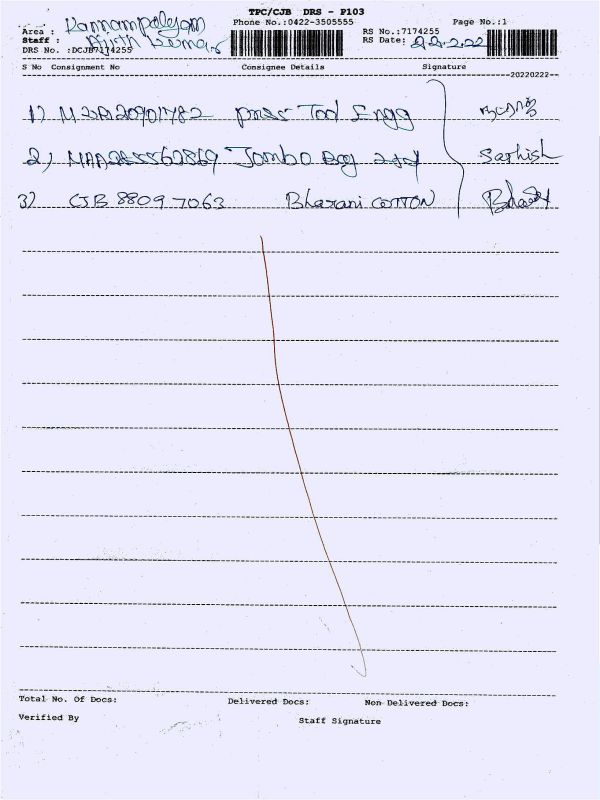 TPC/CJB DRS - P103
Phone No.:0422-3505555 Page No.:1
Area : Kannampalayam RS No.:7174255
Staff : Ajith Kumar RS Date: 22.2.22
DRS No. :DCJB7174255
S No Consignment No Consignee Details Signature
--20220222--
1) 20901782 Tool Engg
2) Jombo Bag Sathish
3) CJB 8809 7063 Bharani COTTON
Total No. Of Docs: Delivered Docs: Non Delivered Docs:
Verified By Staff Signature